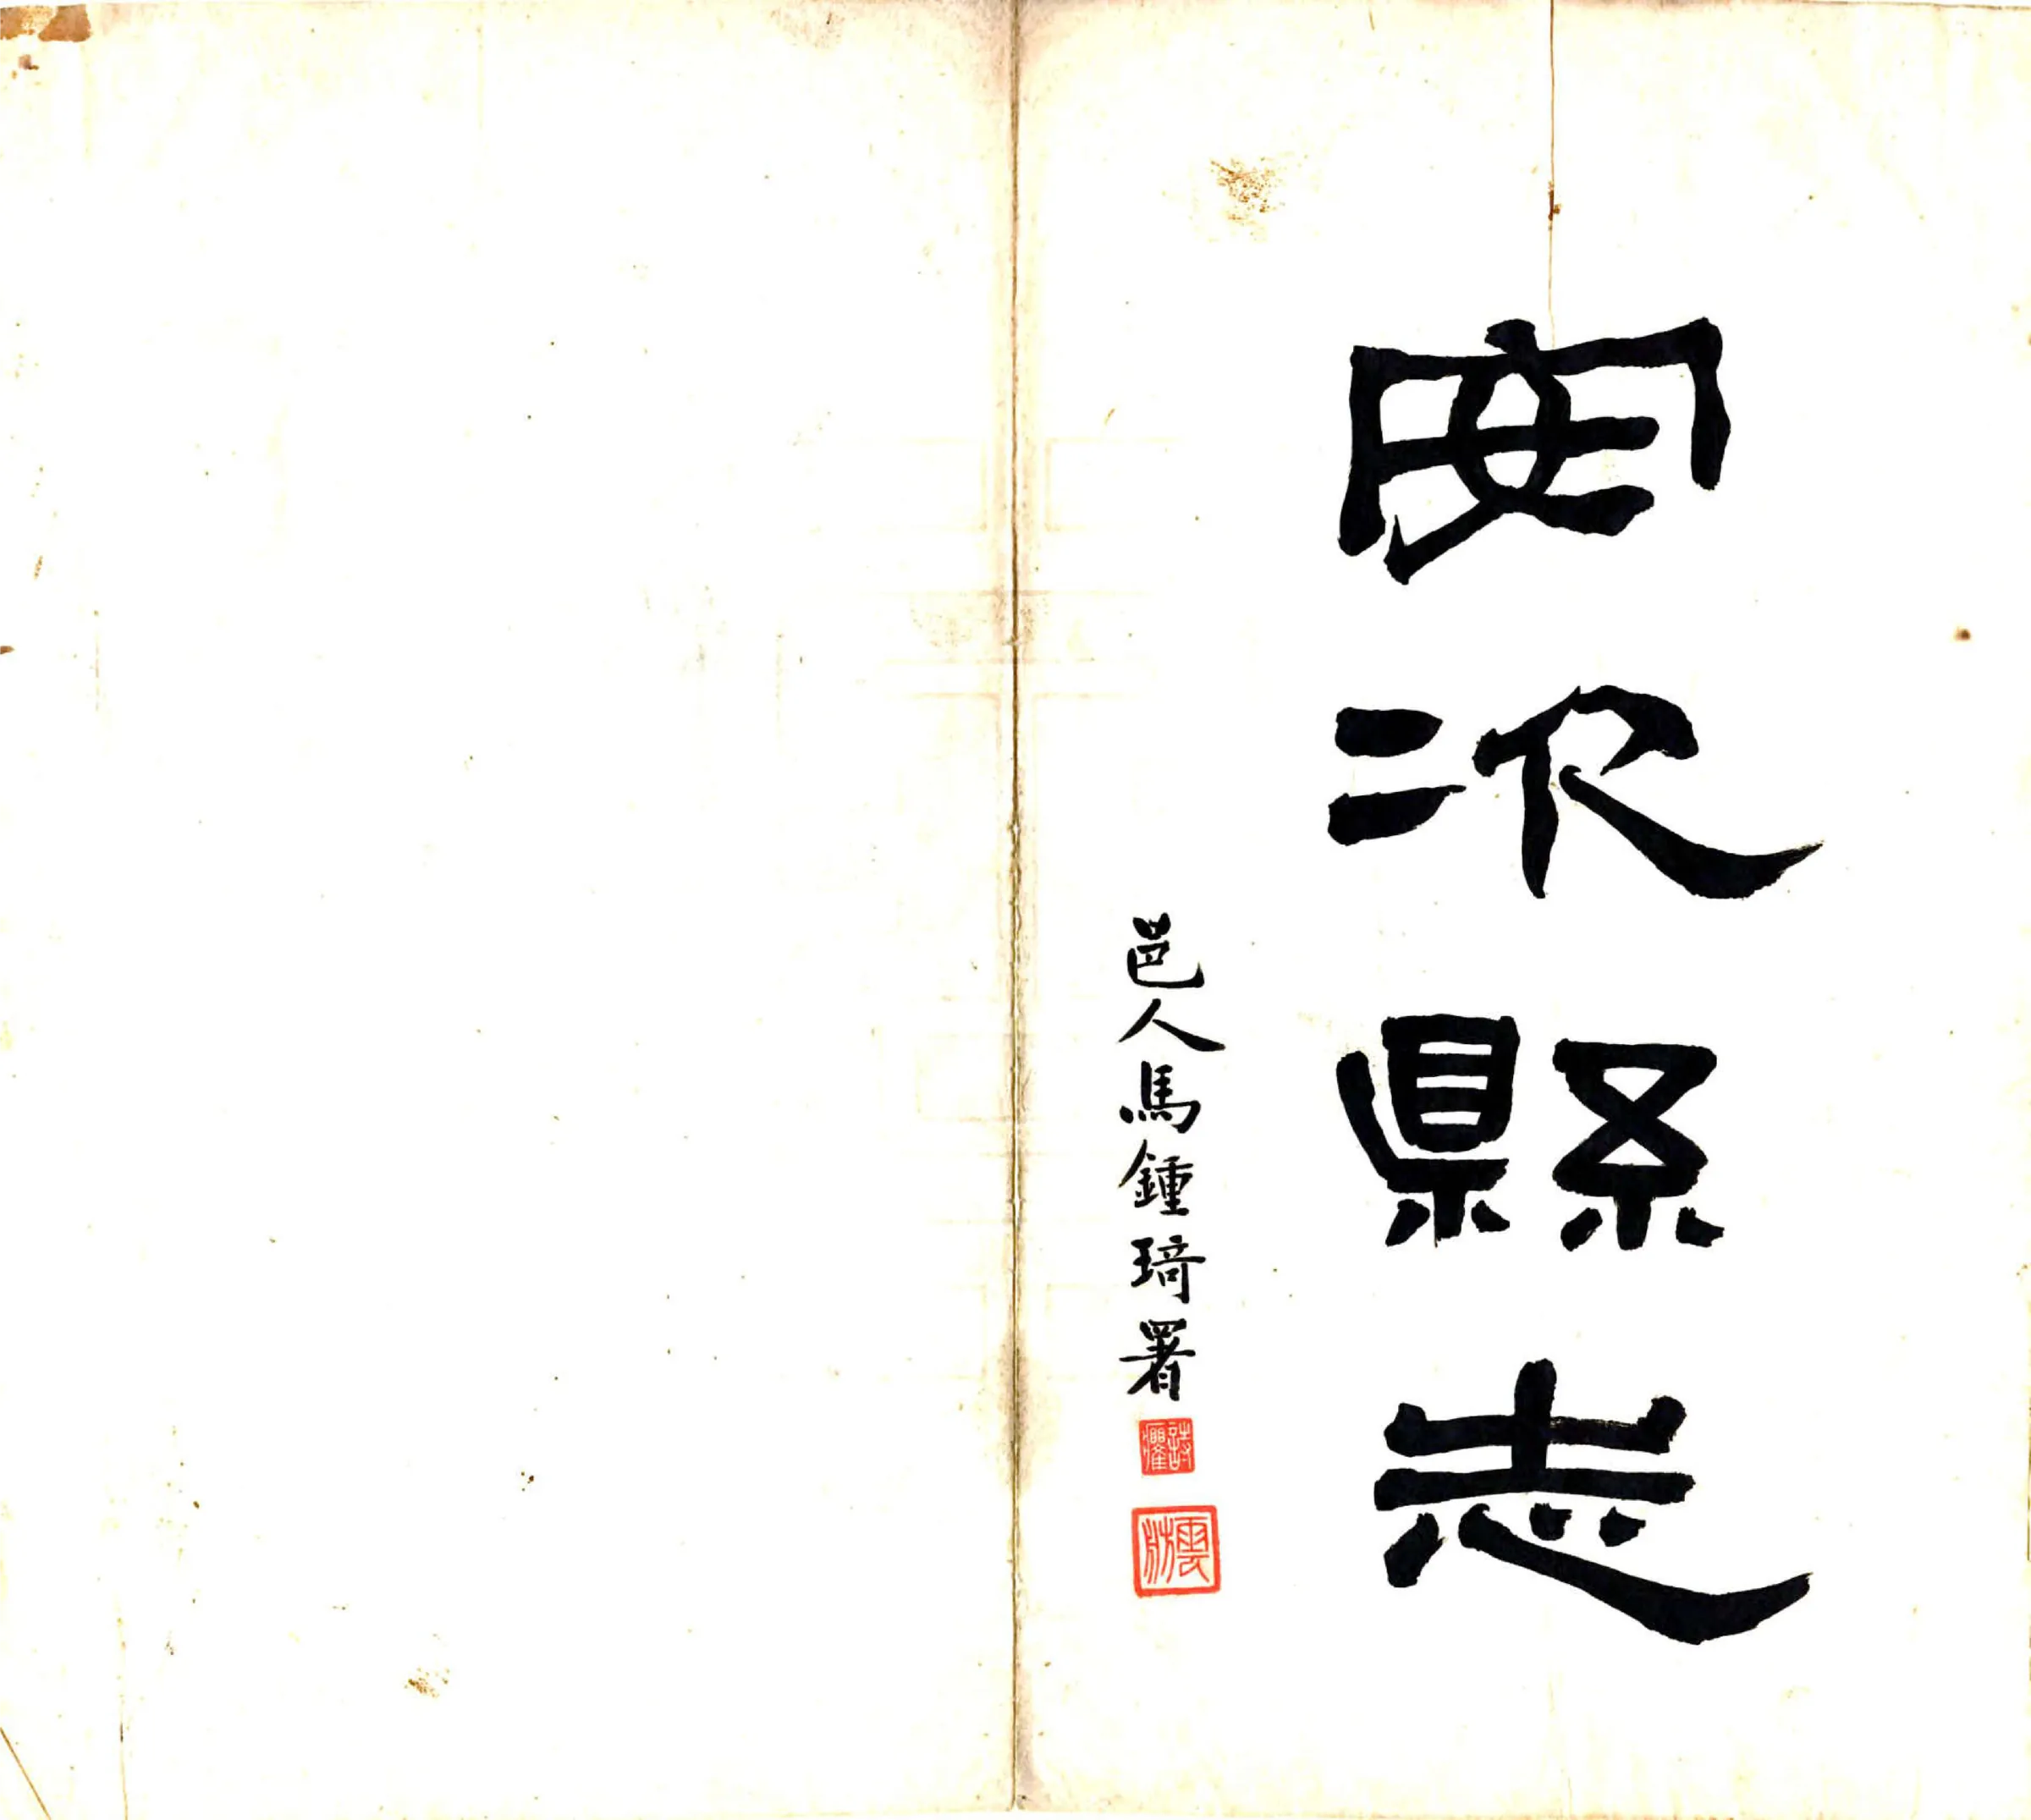 安次縣志
邑人馬鍾琦署
詩癯